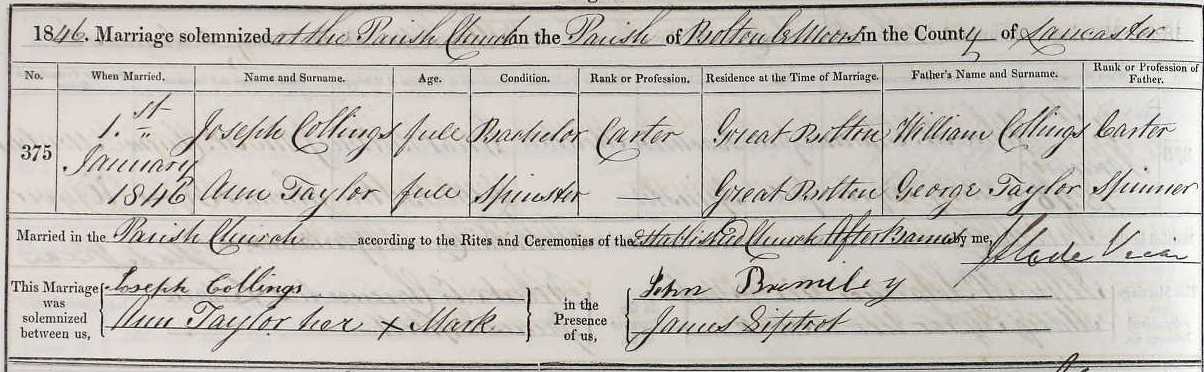 1846. Marriage solemnized at the Parish Church in the Parish of Bolton le Moors in the County of Lancaster
No. When Married. Name and Surname. Age. Condition. Rank or Profession. Residence at the Time of Marriage. Father's Name and Surname. Rank or Profession of Father.
375 1.st January 1846 Joseph Collings full Bachelor Carter Great Bolton William Collings Carter
Ann Taylor full Spinster — Great Bolton George Taylor Spinner
Married in the Parish Church according to the Rites and Ceremonies of the Established Church After Banns by me,
J Slade Vicar
This Marriage was solemnized between us, Joseph Collings
Ann Taylor her x Mark
in the Presence of us, John Bromiley
James Liptrot